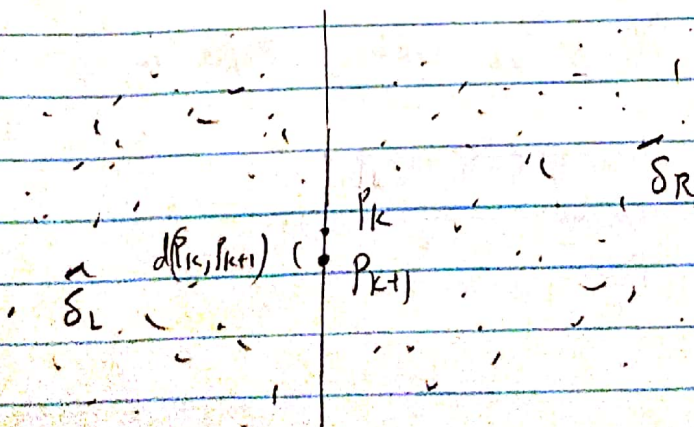 δR
Pk
d(Pk, Pk+1)
Pk+1
δL